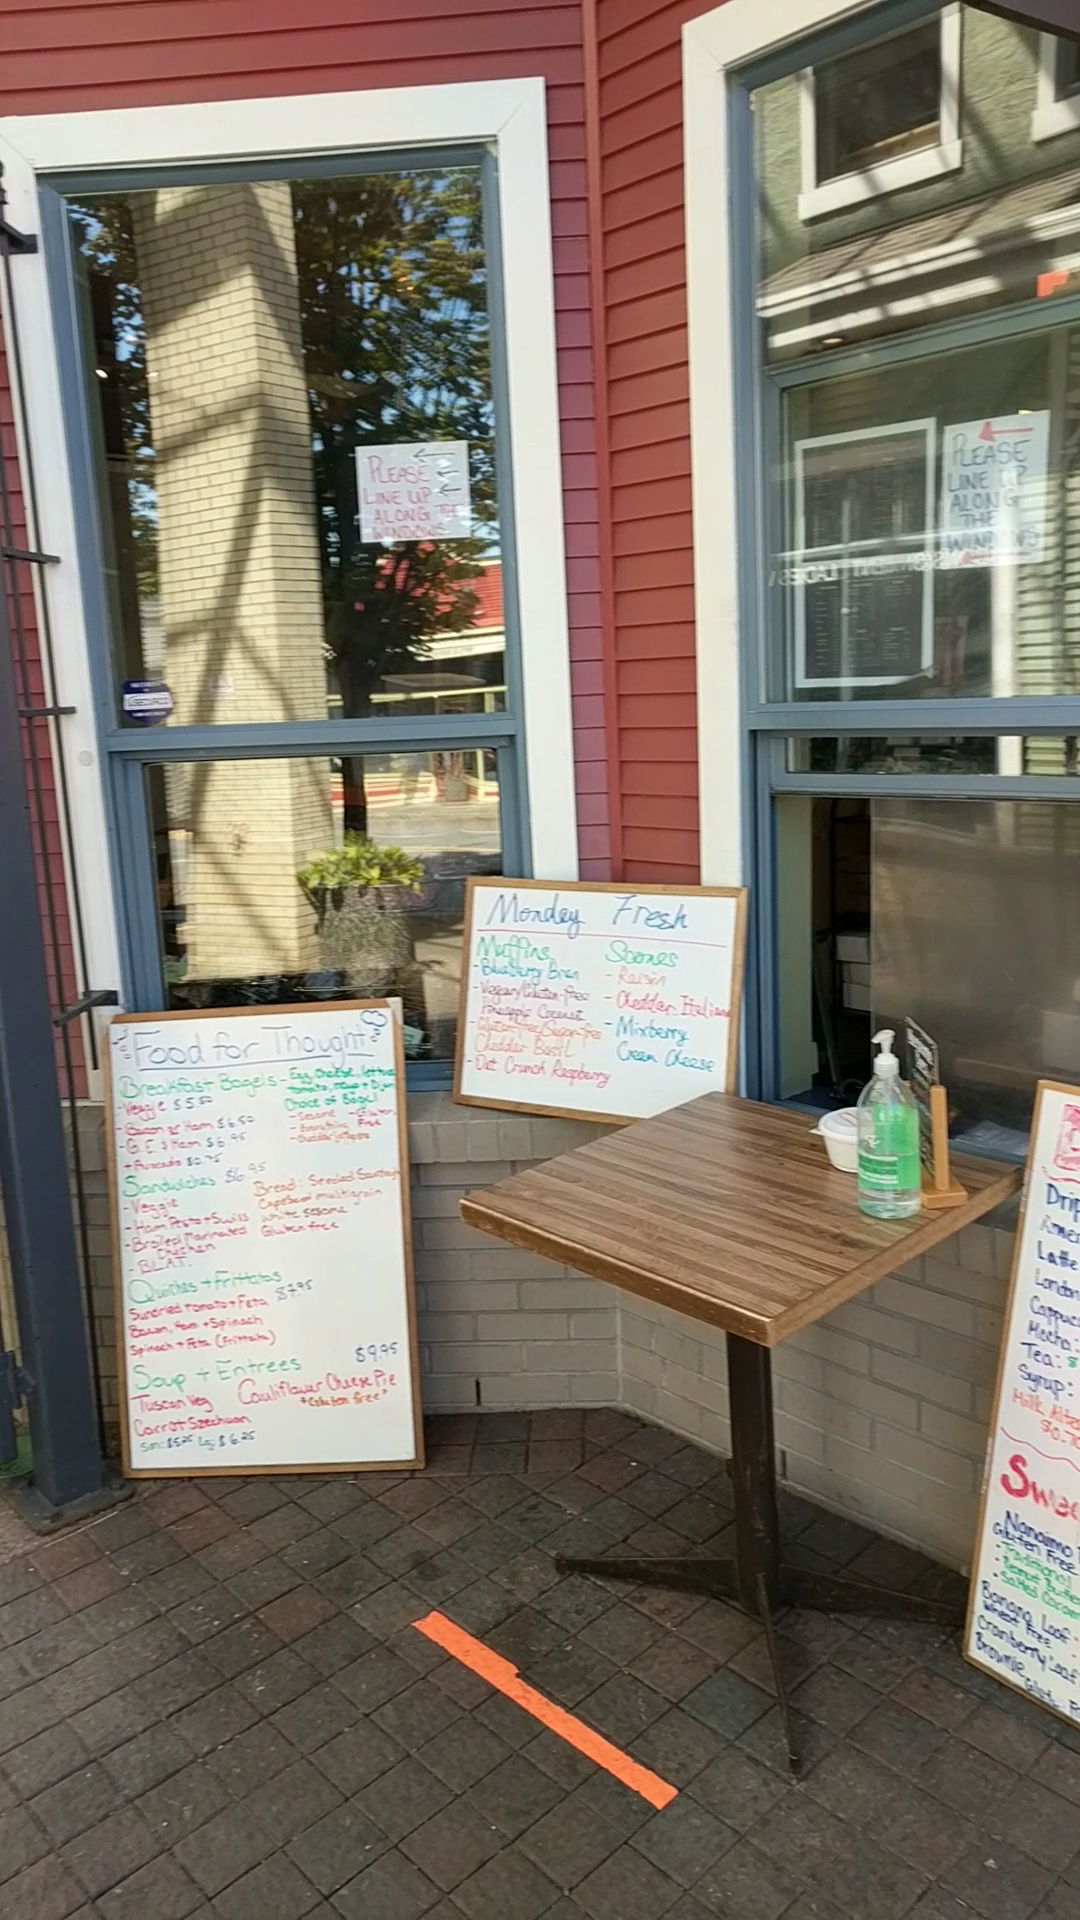 PLEASE
LINE UP
ALONG THE
WINDOWS
PLEASE
LINE UP
ALONG
THE
WINDOWS
Monday Fresh
Muffins
- Blueberry Bran
- Vegan/Gluten-free
Pineapple Coconut
- Gluten-free/Sugar-free
Cheddar Basil
- Oat Crunch Raspberry
Scones
- Raisin
- Cheddar Italiano
- Mixberry
Cream Cheese
Food for Thought
Breakfast Bagels - Egg, cheese, lettuce
tomato, mayo + Dijon
- Veggie $5.50
Choice of Bagel
- Bacon or Ham $6.50
- Sesame - Gluten
- Everything Free
- B.E. + Ham $6.95
- Cheddar jalapeno
+ Avocado $0.75
Sandwiches $6.95
- Veggie
- Ham Pesto + Swiss
- Broiled Marinated
Chicken
- B.L.A.T.
Bread: Seeded Sourdough
Capeseed multigrain
white sesame
Gluten free
Quiches + Frittatas
$7.95
Sundried tomato + Feta
Bacon, Ham + Spinach
Spinach + Feta (Frittata)
Soup + Entrees $9.95
Tuscan Veg
Cauliflower Cheese Pie
*Gluten free*
Carrot Szechuan
Sm: $5.25 Lg: $6.25
Drip
Latte
London
Cappucc
Mocha:
Tea: $
Syrup:
Milk Alte
$0.7
Swee
Nanaimo
Gluten Free
- Traditional
- Peanut Butter
- Salted Caram
Banana Loaf
Wheat Free
Cranberry Loaf
Brownie